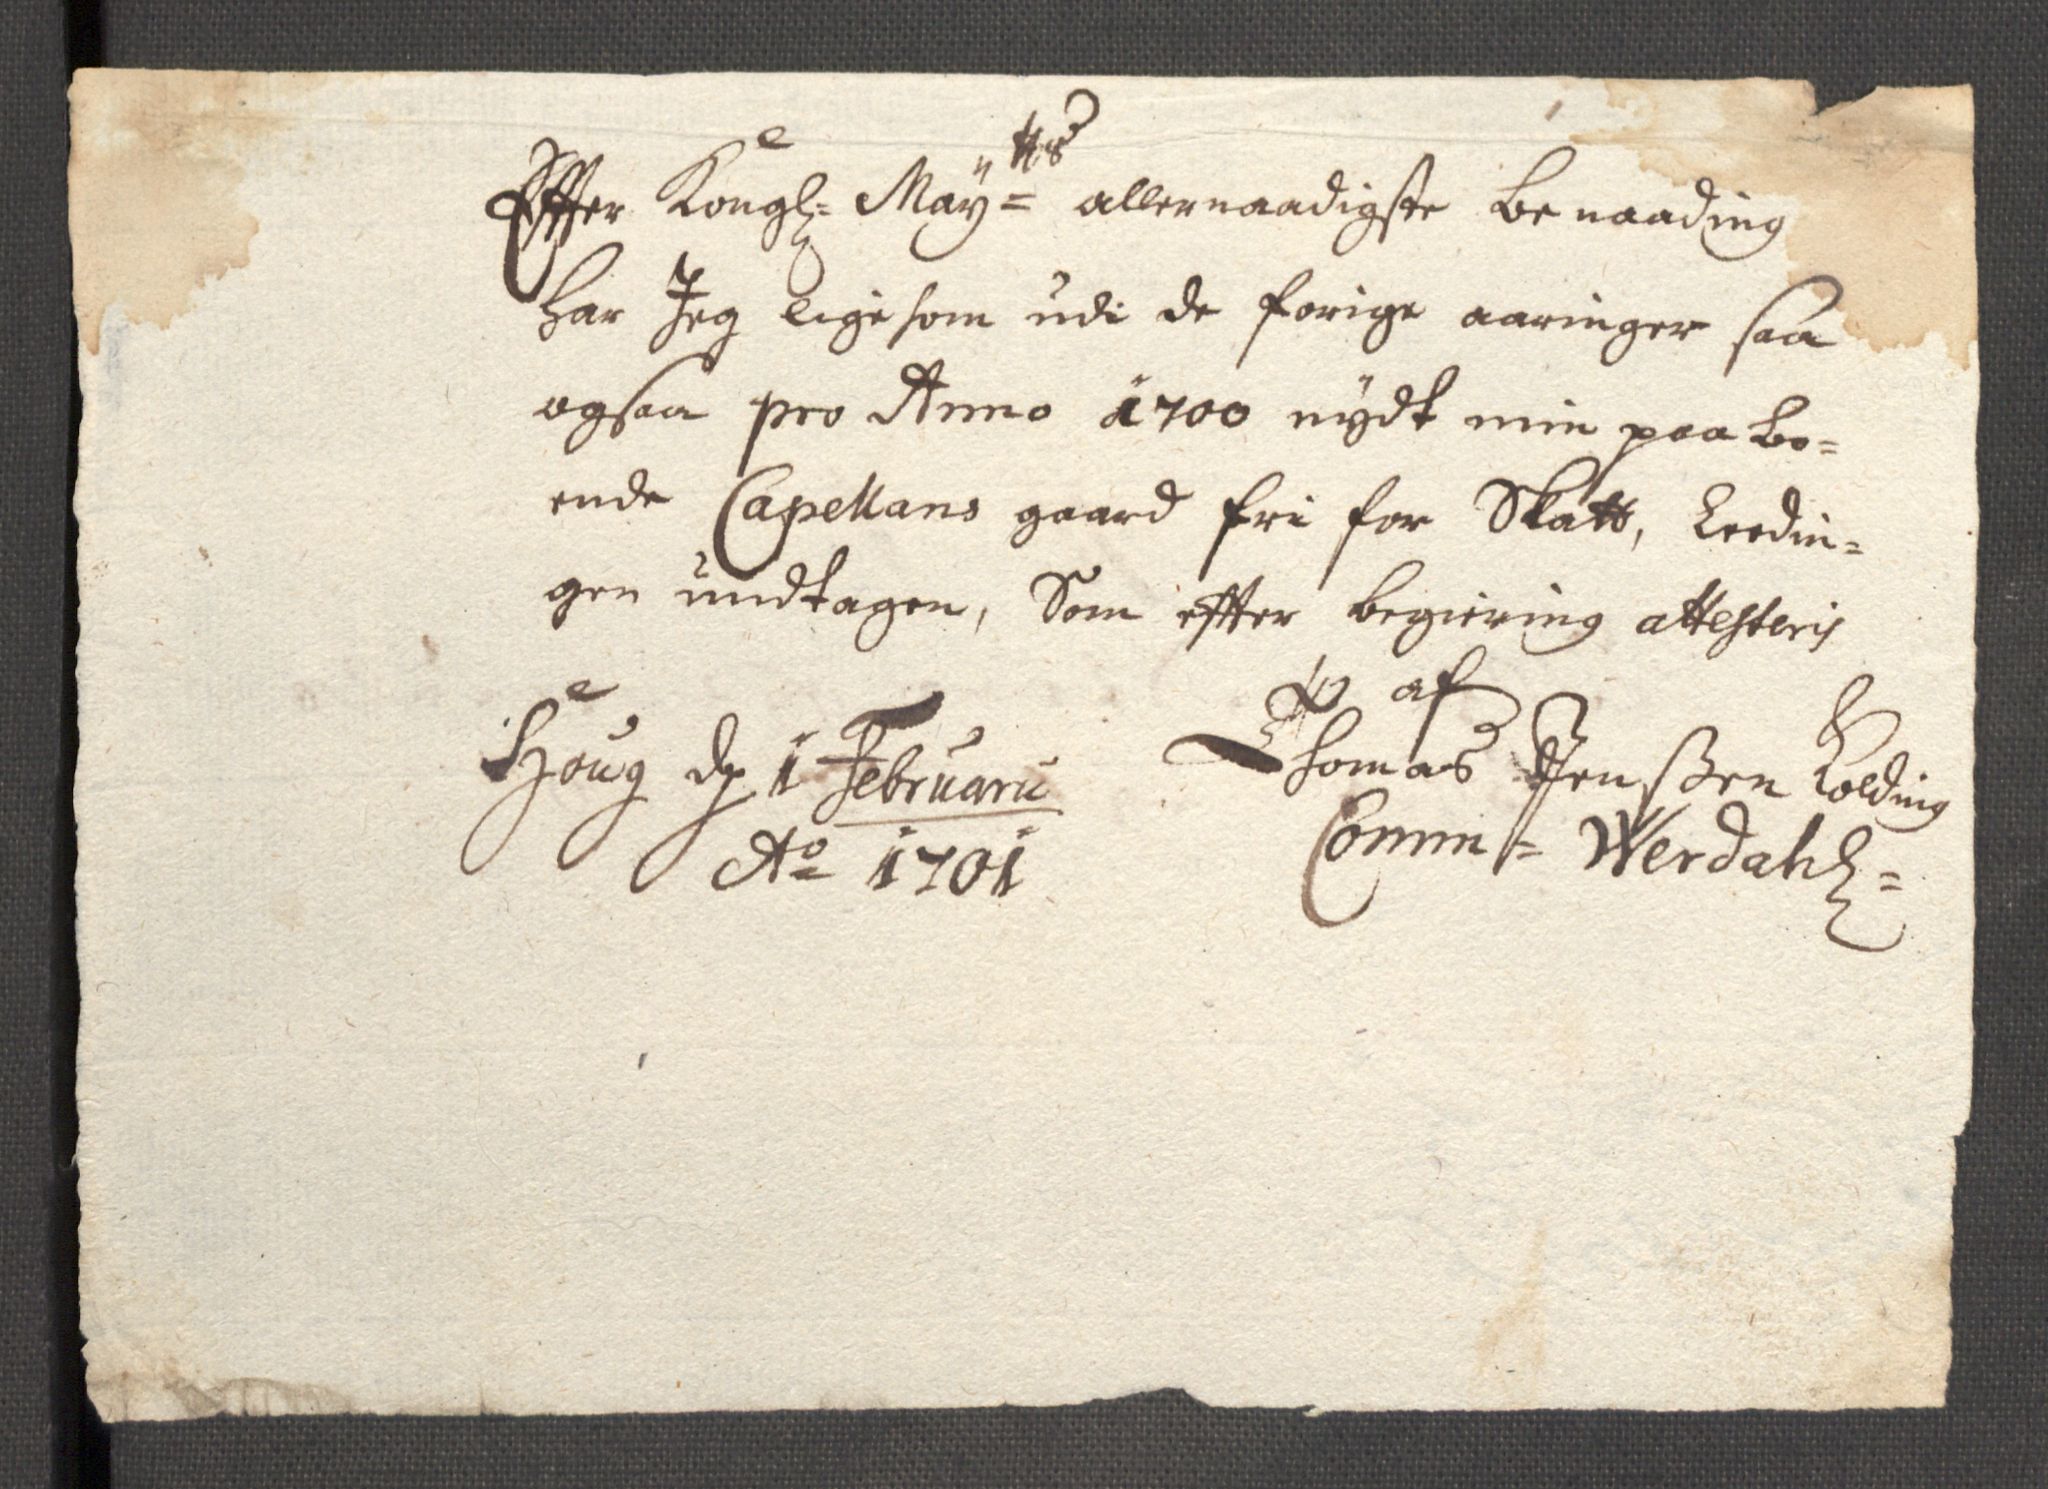 Effter Kongl: Maÿ=tts allernaadigste Benaading
har Jeg ligesom udi de forige aaringer saa
ogsaa pro Anno 1700 nÿdt min paaboe=
ende Capellans gaard fri for Skatt, Leedin=
gen undtagen, Som effter begiering attesteris
af
Houg dh 1 Februarii Thomas Jenßen Kolding
Ao 1701 Comm= Werdahl=